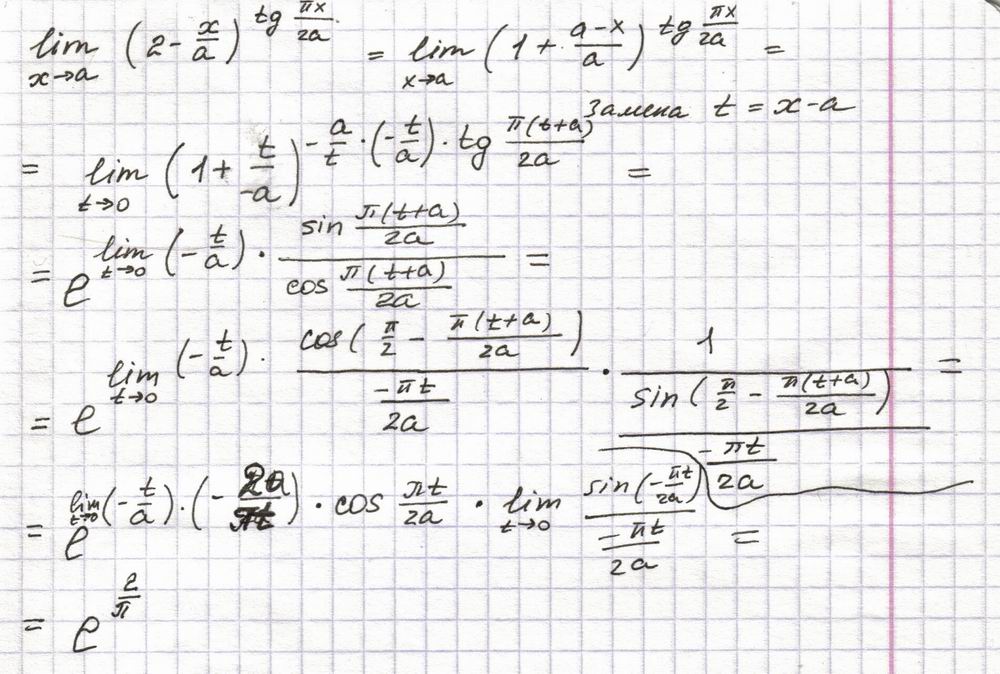 lim x→a (2 - x/a)^(tg πx/2a) = lim x→a (1 + (a-x)/a)^(tg πx/2a) =
Замена t = x - a
= lim t→0 (1 + t/-a)^(-a/t · (-t/a) · tg π(t+a)/2a) =
= e^(lim t→0 (-t/a) · (sin π(t+a)/2a)/(cos π(t+a)/2a)) =
= e^(lim t→0 (-t/a) · cos(π/2 - π(t+a)/2a)/(-πt/2a) · 1/(sin(π/2 - π(t+a)/2a)/(-πt/2a))) =
= e^(lim t→0 (-t/a) · (-2a/πt) · cos πt/2a · lim t→0 sin(-πt/2a)/(-πt/2a)) =
= e^(2/π)